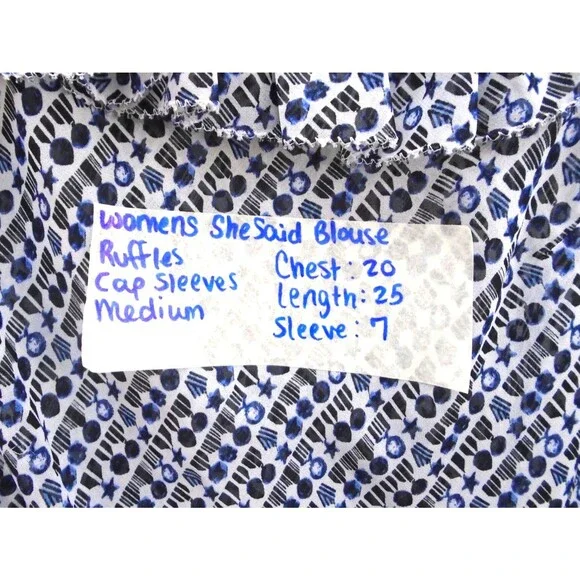 Womens She Said Blouse
Ruffles
Cap Sleeves
Medium
Chest: 20
Length: 25
Sleeve: 7